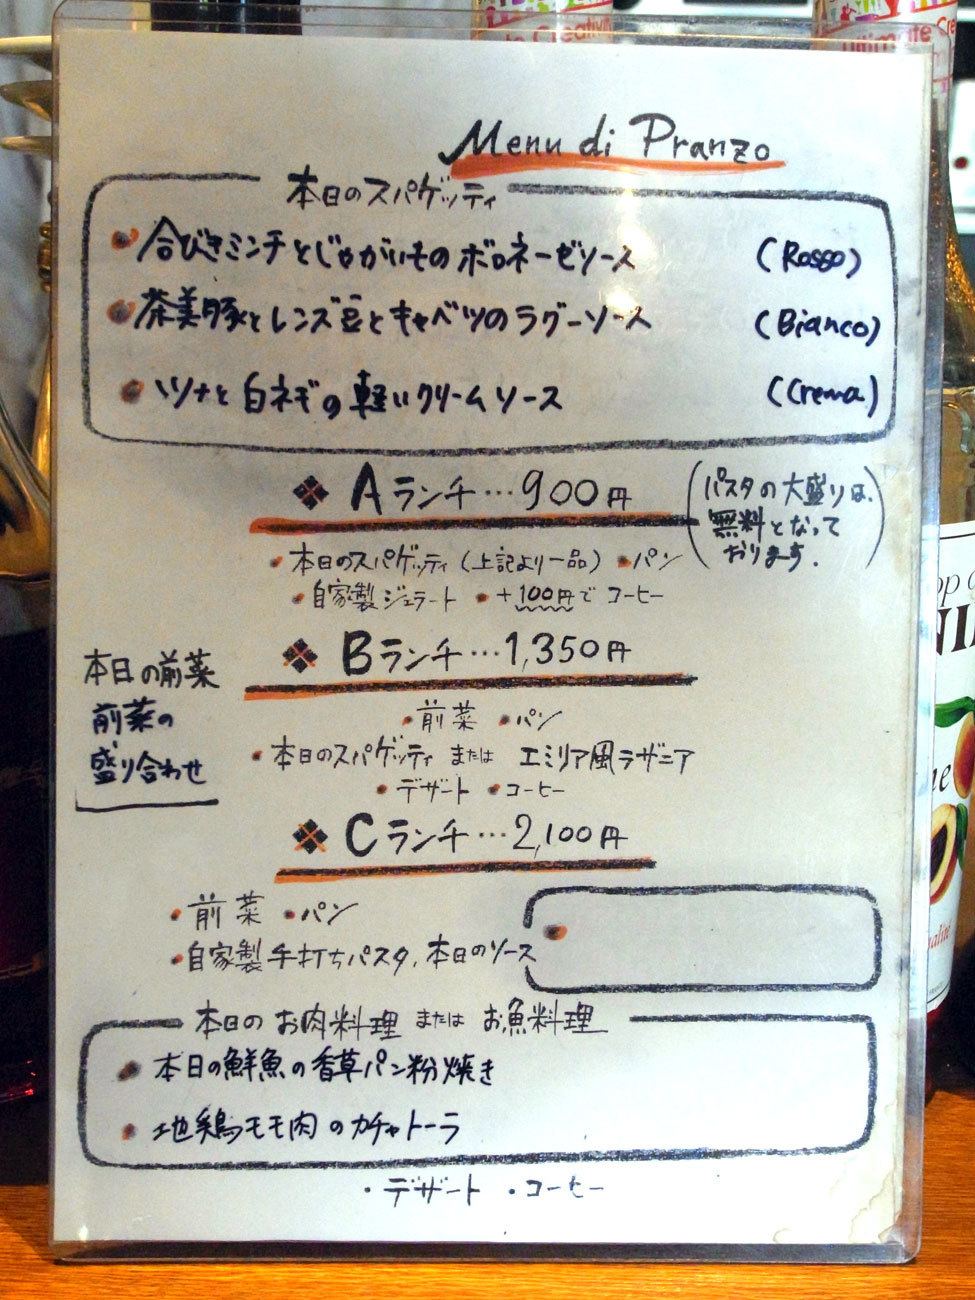 Menu di Pranzo
本日のスパゲッティ
・合びきミンチとじゃがいものボロネーゼソース (Rosso)
・茶美豚とレンズ豆とキャベツのラグーソース (Bianco)
・ツナと白ネギの軽いクリームソース (Crema)
❖ Aランチ…900円
(パスタの大盛りは、
無料となって
おります.)
・本日のスパゲッティ(上記より一品) ・パン
・自家製ジェラート ・+100円で コーヒー
❖ Bランチ…1,350円
本日の前菜
前菜の
盛り合わせ
・前菜 ・パン
・本日のスパゲッティ または エミリア風ラザニア
・デザート ・コーヒー
❖ Cランチ…2,100円
・前菜 ・パン
・自家製手打ちパスタ,本日のソース
本日の お肉料理 または お魚料理
・本日の鮮魚の香草パン粉焼き
・地鶏モモ肉のカチャトーラ
・デザート ・コーヒー